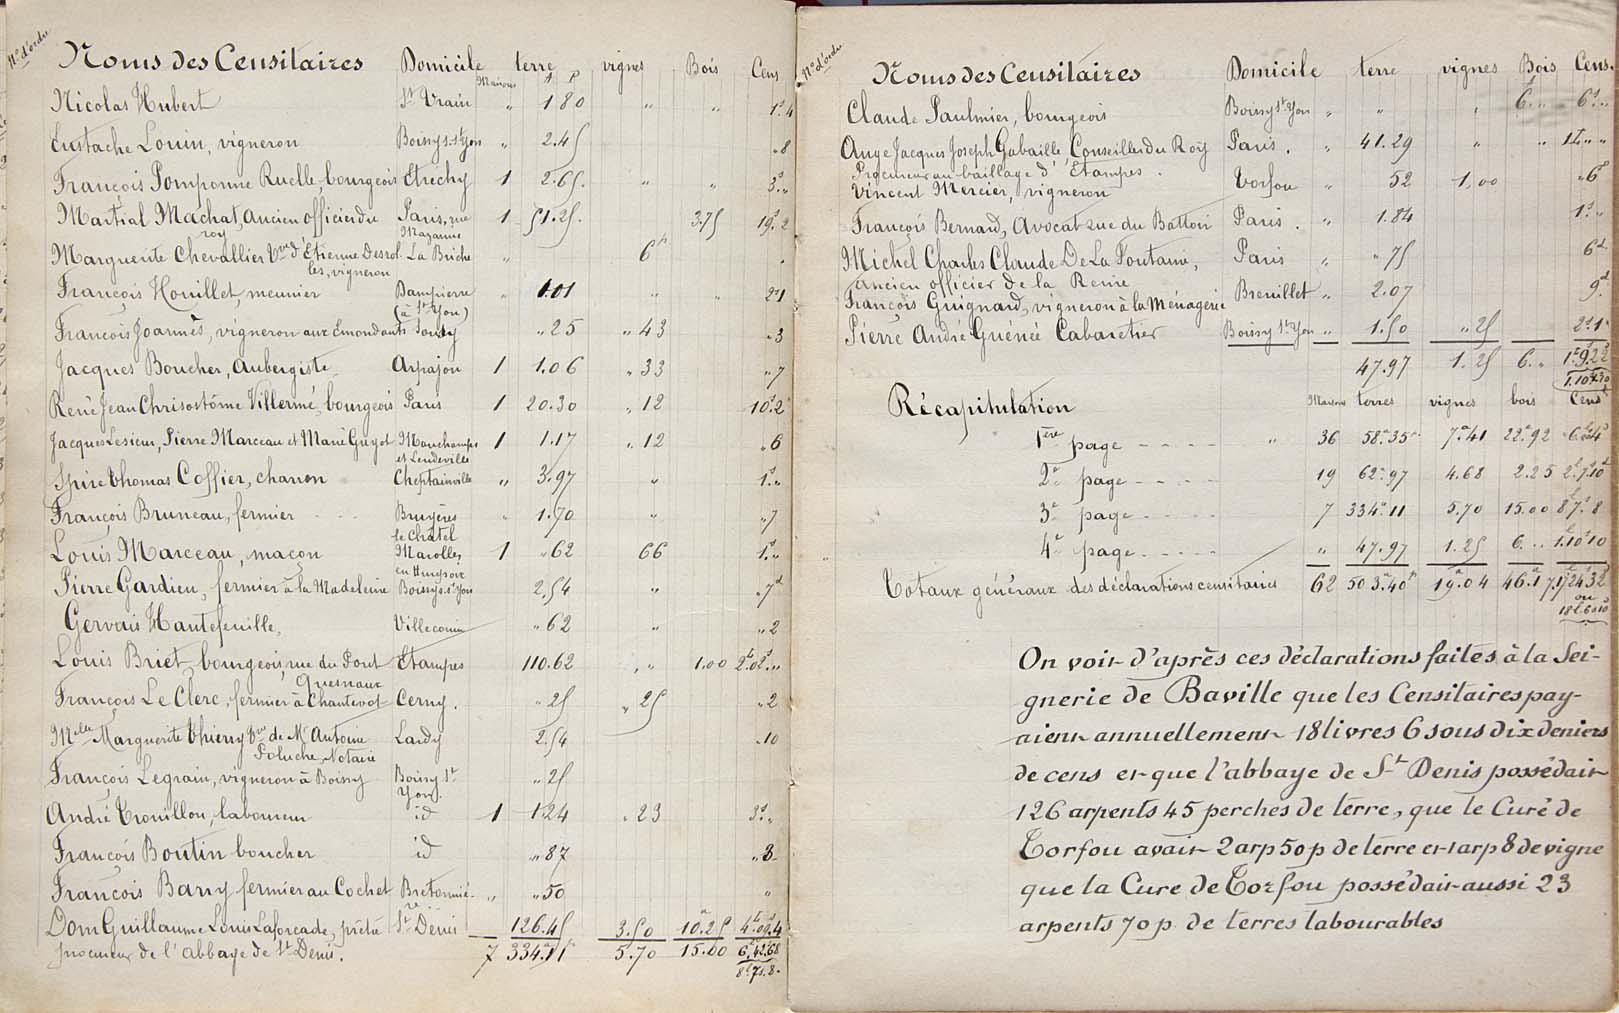 N° d'ordre
Noms des Censitaires Domicile Maisons terre vignes Bois Cens
A P
Nicolas Hubert St Vrain " 1 80 " " 1s 4
Eustache Louin, vigneron Boissy s. St Yon " 2.45 " 8
François Pomponne Ruelle, bourgeois Etréchy 1 2.65. " " 3s "
Martial Machat, ancien officier du Paris, rue 1 51.25. 3.75 19s.2
roy Mazarine
Marguerite Chevallier Vve d'Etienne Desrol- La Briche " 6p
les, vigneron
François Houillet, meunier Dampierre " 1.01 " " 2s1
(à St Yon)
François Joannès, vigneron aux Emondants " 25 " 43 " 3
Jacques Boucher, Aubergiste Arpajon 1 1.06 " 33 " 7
René Jean Chrisostôme Villermé, bourgeois Paris 1 20.30 " 12 10s.2
Jacques Lesieur, Pierre Marceau et Marie Guyot Mauchamps 1 1.17 " 12 " 6
et Leudeville
Spire Thomas Coffier, charron Cheptainville " 3.97 " 1s "
François Bruneau, fermier Bruyères " 1.70 " " 7
le Chatel
Louis Marceau, maçon Marolles 1 " 62 66 1s "
en Hurepoix
Pierre Gardien, fermier à la Madeleine Boissy s. St Yon 2.54 " " 7d
Gervais Hautefeuille, Villeconin " 62 " " 2
Louis Briet, bourgeois, rue du Pont Etampes 110.62 " " 1.00 2L.02s "
Quesnaux
François Le Clerc, fermier à Chantevot Cerny. " 25 " 25 " 2
Melle Marguerite Thierry Vve de Mr Antoine Lardy 2.54 " 10
Poluche, Notaire
François Legrain, vigneron à Boissy Boissy St " 25
Yon.
André Trouillon, laboureur id 1 1.24 " 23 3s "
François Boutin boucher id " 87 " 8
François Barry fermier au Cochet Bretonnié- " " 50 "
re
Dom Guillaume Louis Laforcade, prêtre St Denis 126.45 3.50 10.25 4L.09s.4
procureur de l'Abbaye de St Denis. 7 334.11 5.70 15.00 6.42.68
8L7s.8.
N° d'ordre
Noms des Censitaires Domicile terre vignes Bois Cens.
Claude Paulmier, bourgeois Boissy St Yon " " " 6 " 6s "
Ange Jacques Joseph Gabaille, Conseiller du Roy Paris. " 41.29 " " 1L " "
Procureur au bailliage d'Etampes.
Vincent Mercier, vigneron Torfou " 52 1,00 " 6d
François Bernard, Avocat rue du Battoir Paris. " 1.84 1s "
Michel Charles Claude De La Fontaine, Paris " " 75 6d
ancien officier de la Reine
François Guignard, vigneron à la Ménagerie Breuillet " 2.07 9d
Pierre André Guénée Cabaretier Boissy St Yon " 1.50 " 25 2s1
47.97 1.25 6. " 1L9s.22
1.10s.10
Récapitulation Maisons terres vignes bois Cens
1ère page - - - - " 36 58a.35 7a.41 22a.92 6L.s4d
2e page - - - - 19 62a.97 4.68 2.25 2L.7s10d
3e page - - - - 7 334a.11 5.70 15.00 8L7s.8
4e page - - - - " 47.97 1.25 6. " 1L10s10
Totaux généraux des déclarations censitaires 62 503a.40p 19a.04 46a.17 17L24s32d
ou
18L6s10d
On voit d'après ces déclarations faites à la Sei-
gnerie de Baville que les Censitaires pay-
aient annuellement 18 livres 6 sous dix deniers
de cens et que l'abbaye de St Denis possédait
126 arpents 45 perches de terre, que le Curé de
Torfou avait 2 arp 50 p de terre et 1 arp 8 de vigne
que la Cure de Torfou possédait aussi 23
arpents 70 p. de terres labourables